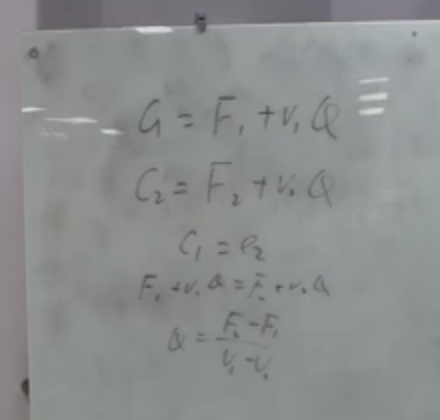 C₁ = F₁ + V₁ Q
C₂ = F₂ + V₂ Q
C₁ = C₂
F₁ + V₁ Q = F₂ + V₂ Q
Q = (F₂ - F₁) / (V₁ - V₂)